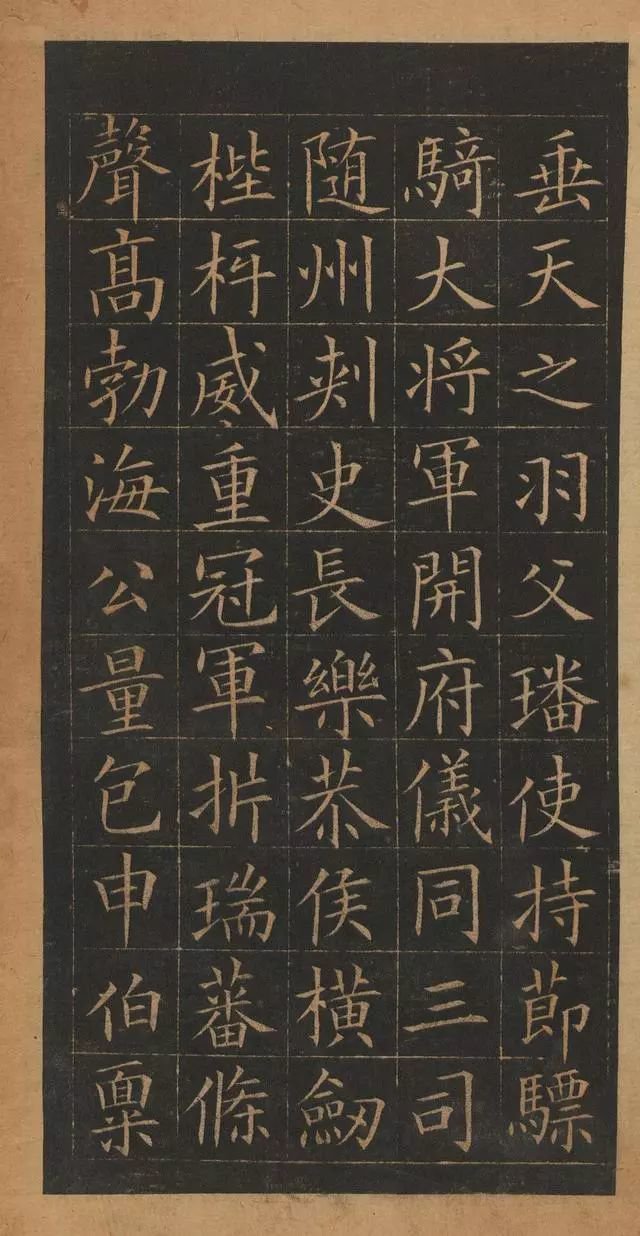 垂天之羽父璠使持莭驃
騎大将軍開府儀同三司
随州刾史長樂恭侯橫劒
梐枑威重冠軍折瑞蕃條
聲髙勃海公量包申伯稟